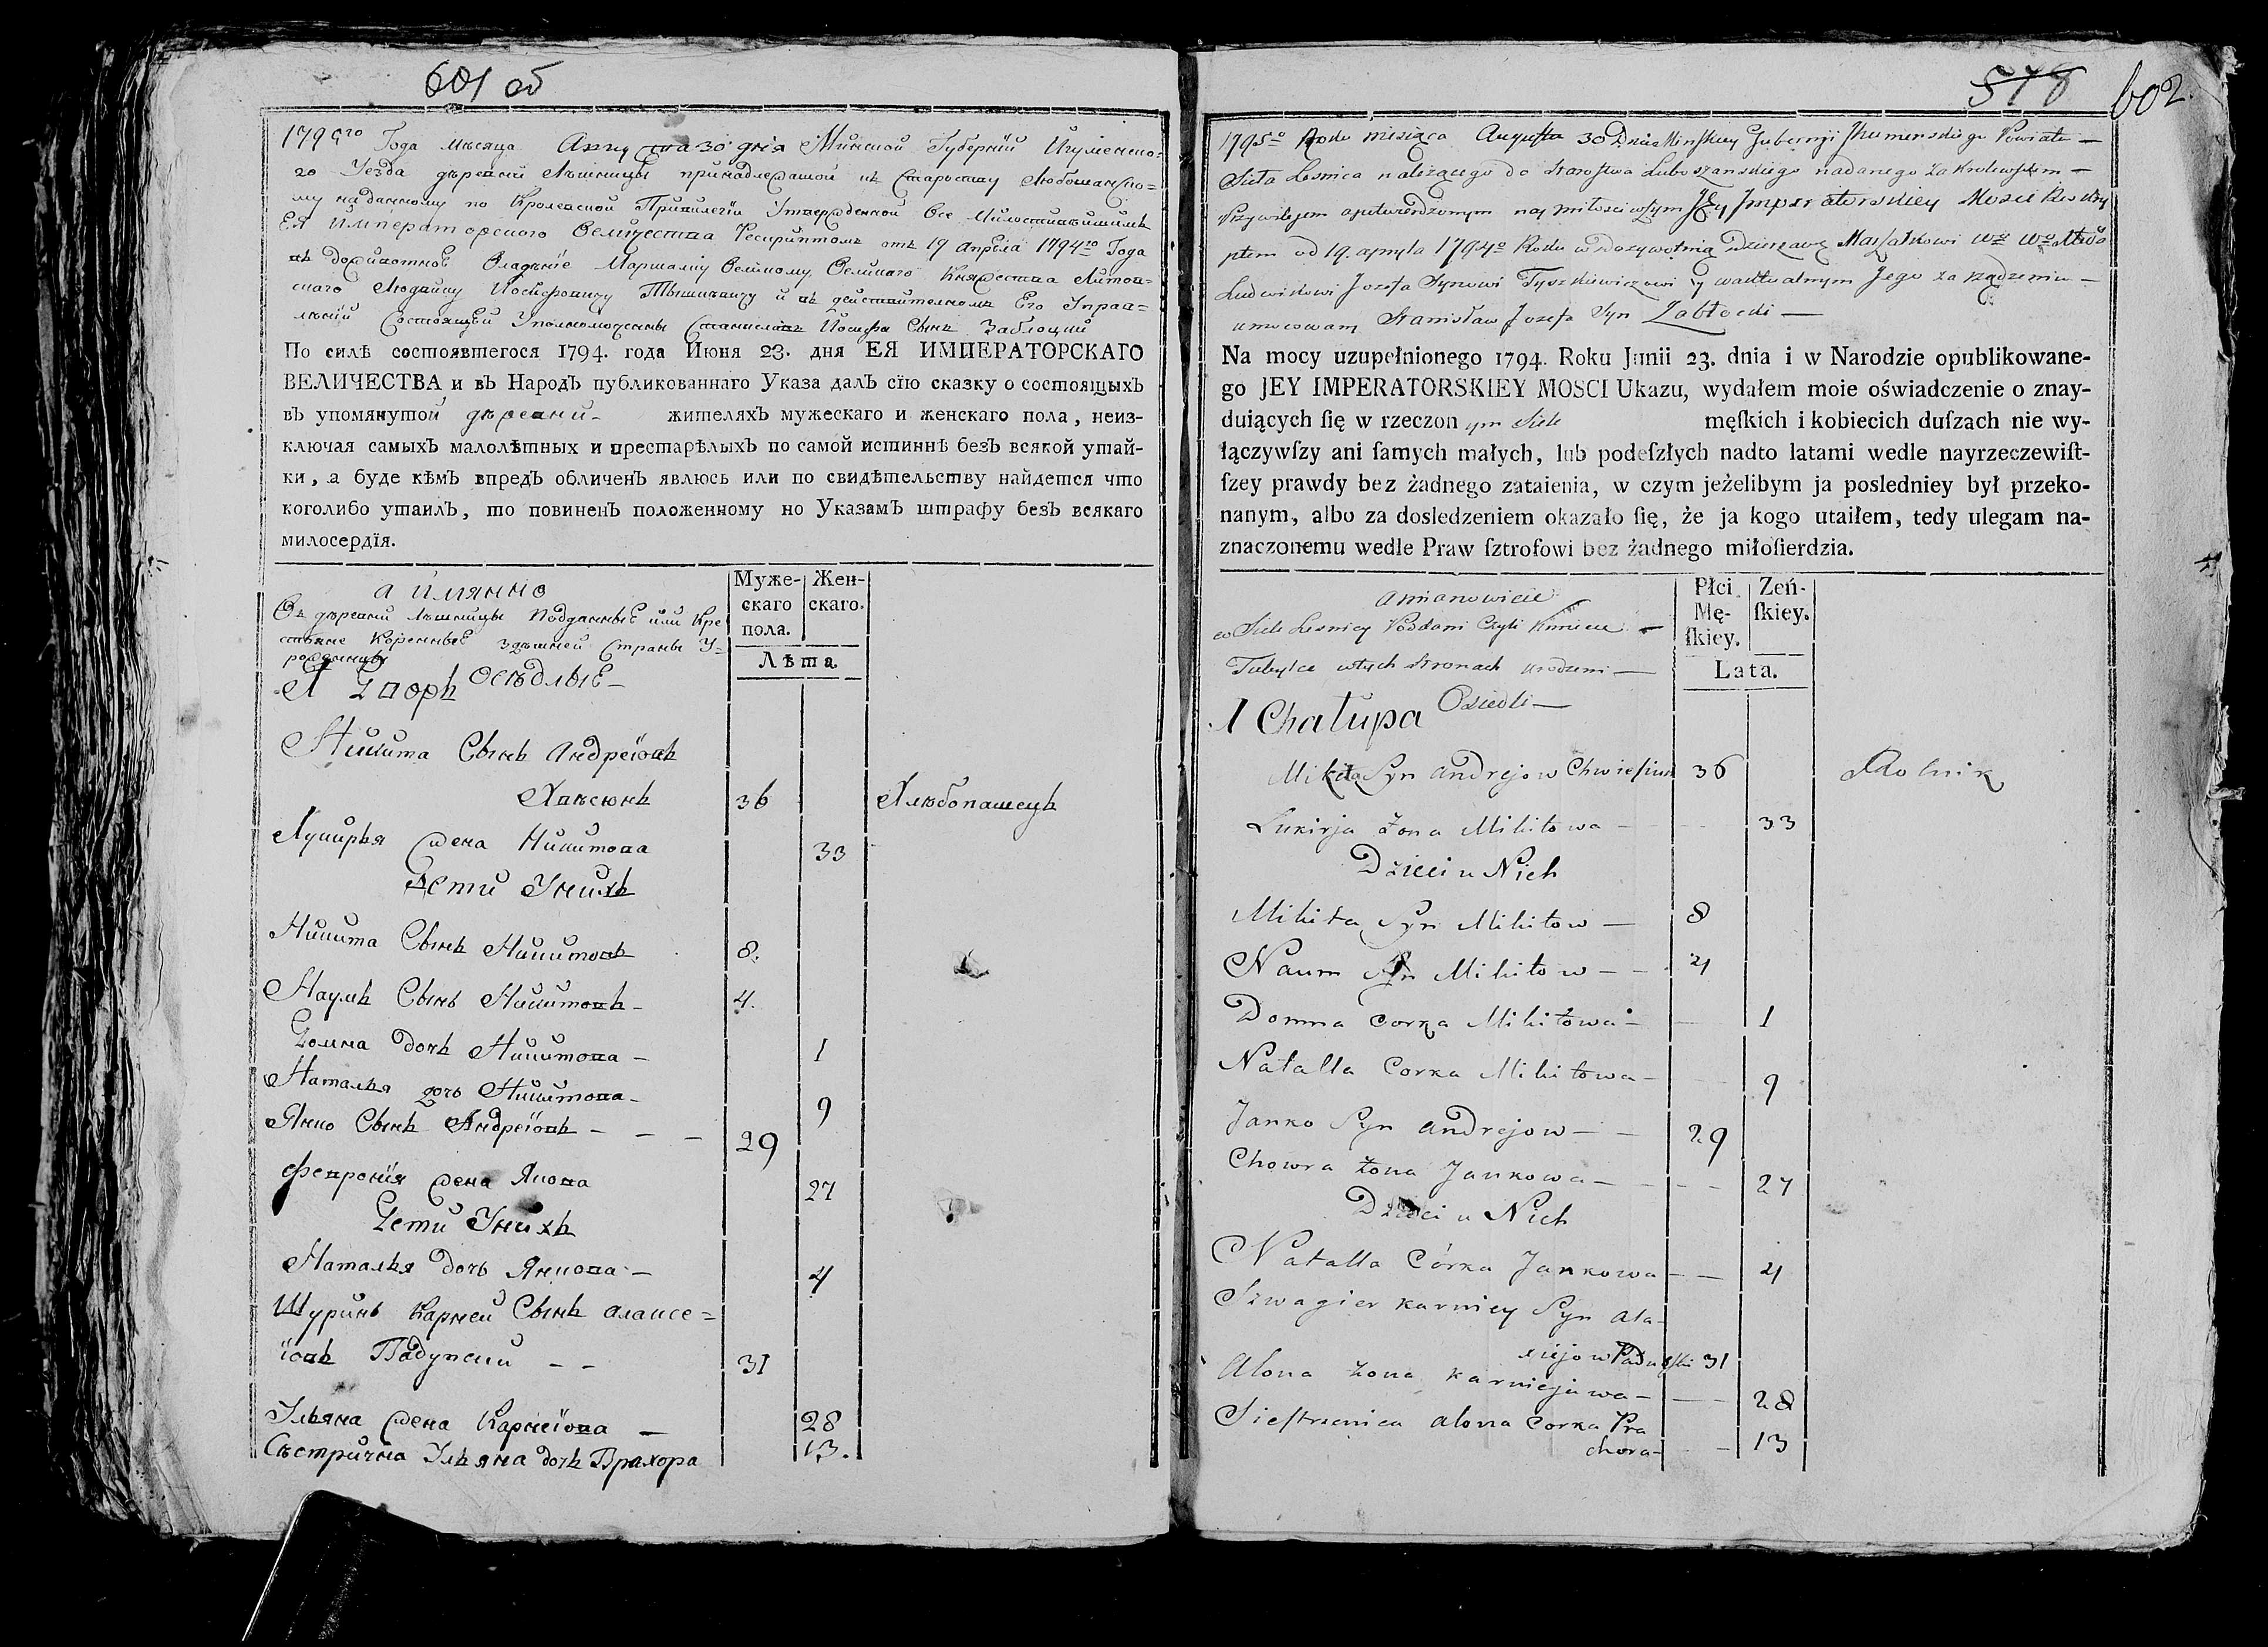 601 об
1795го Года мѣсяца Августа 30 дня Минской Губернїи Игуменско=
го Уезда дѣревни Лѣшницы принадлежащой къ Староству Любошанско=
му наданному по Кролевской Привилегїи Утвержденной Все Милостивѣйшимъ
ЕЯ Императорского Величества Рескриптомъ отъ 19 апрѣля 1794го Года
въ доживотнοе Владѣнїе Маршалку Великому Великаго Княжества Литов=
скаго Людвику Иосифовичу Тышкевичу и въ действителномъ Его Управ=
лѣнїи Состоящей Уполномоченны Станиславъ Иосифа Сынъ Заблоцкий
По силѣ состоявшегося 1794. года Июня 23. дня ЕЯ ИМПЕРАТОРСКАГО
ВЕЛИЧЕСТВА и въ Народъ публикованнаго Указа далъ сїю сказку о состоящыхъ
въ упомянутой дѣревни - жителяхъ мужескаго и женскаго пола, неиз-
ключая самыхъ малолѣтныхъ и престарѣлыхъ по самой истиннѣ безъ всякой утай-
ки, а буде кѣмъ впредъ обличенъ явлюсь или по свидѣтельству найдется что
коголибо утаилъ, то повиненъ положенному по Указамъ штрафу безъ всякаго
милосердїя.
а имянно
Въ дѣревни Лѣшницы Подданные или Кре
стьяне Коренные здѣшней Страны У=
рожденцы
Муже-
скаго
пола.
Жен-
скаго.
Лѣта
Осѣдлые -
1 Дворъ
Никита Сынъ Андреïовъ
Хвѣсюкъ 36 Хлѣбопашецъ
Лукирья жена Никитова 33
Дети Унихъ
Никита Сынъ Никитовъ 8.
Наумъ Сынъ Никитовъ - 4.
Домна дочь Никитова - 1
Наталья дочь Никитова - 9
Янко Сынъ Андреïовъ - - - 29
Февронïя жена Янкова 27
Дети Унихъ
Наталья дочь Янкова - 4
Шуринъ Карней Сынъ алаксе=
ïовъ Падунский - - 31
Ульяна жена Карнеïова - 28
Сѣстрична Ульяна дочь Прахора 13.
578 602.
1795o Roku miesiąca Augusta 30 Dnia Minskiey Gubernji Jhumenskiego Powiatu -
Sieła Leśnica należącego do Starostwa Luboszanskiego nadanego za Krolewskim -
Przywilejem aputwierdzonym nay miłosciwszym JEy Jmperatorskiey Mosci Reskry
ptem od 19. apryla 1794o Roku w dożywotnią dzierżawę Marszałkowi Wo Wo Xtwa
Ludwikowi Jozefa Synowi Tyszkiewiczowi y waktualnym Jego za rządzeniu -
umocowany Stanisław Jozefa Syn Zabłocki -
Na mocy uzupełnionego 1794. Roku Junii 23. dnia i w Narodzie opublikowane-
go JEY IMPERATORSKIEY MOSCI Ukazu, wydałem moie oświadczenie o znay-
duiących ſię w rzeczon ym Siele męſkich i kobiecich duſzach nie wy-
łączywſzy ani ſamych małych, lub podeſzłych nadto latami wedle nayrzeczewiſt-
ſzey prawdy bez żadnego zataienia, w czym jeżelibym ja posledniey był przeko-
nanym, albo za dosledzeniem okazało ſię, że ja kogo utaiłem, tedy ulegam na-
znaczonemu wedle Praw ſztrofowi bez żadnego miłoſierdzia.
amianowicie
w Siele Lesnicy Poddani Czyli Kmiecie -
Tubylce wtych stronach urodzeni -
Płci
Mę-
ſkiey.
Zeń-
ſkiey.
Lata.
Osiedli -
1 Chałupa
Mikita Syn andrejow Chwiesiuk 36 Rolnik
Lukirja żona Mikitowa - 33
Dzieci u Nich
Mikita Syn Mikitow - 8
Naum Syn Mikitow - - 4
Domna Corka Mikitowa - 1
Natalla Corka Mikitowa - 9
Janko Syn andrejow - - 29
Chowra żona Jankowa - - - 27
Dzieci u Nich
Natalla Córka Jankowa - - 4
Szwagier Karniey Syn ala-
xiejow Padunski 31
Alona żona Karniejowa - - 28
Siestrzenica alona Corka Pra
chora - - 13